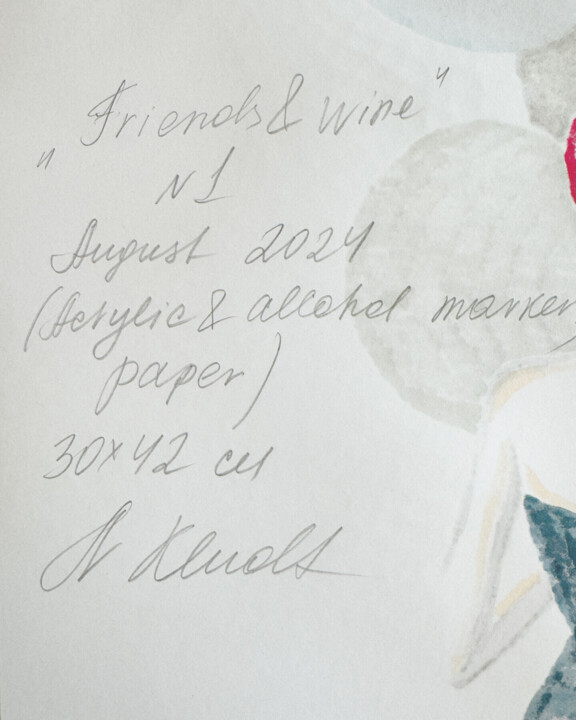 "Friends & wine"
N1
August 2024
(Acrylic & allohol marker,
paper)
30x42 см